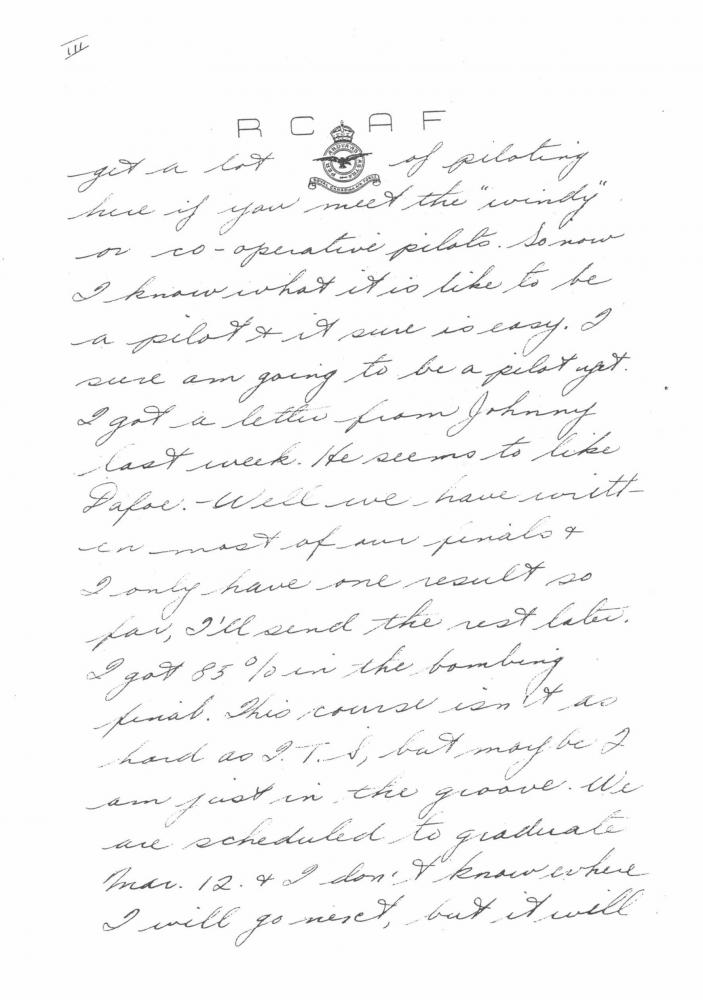 III
R C A F
PER ARDUA AD ASTRA
ROYAL CANADIAN AIR FORCE
get a lot of piloting
here if you meet the "windy"
or co-operative pilots. So now
I know what it is like to be
a pilot & it sure is easy. I
sure am going to be a pilot yet.
I got a letter from Johnny
last week. He seems to like
Dafoe. - Well we have writt-
en most of our finals &
I only have one result so
far, I'll send the rest later.
I got 85 % in the bombing
final. This course isn't as
hard as I.T.S, but maybe I
am just in the groove. We
are scheduled to graduate
Mar. 12. & I don't know where
I will go next, but it will